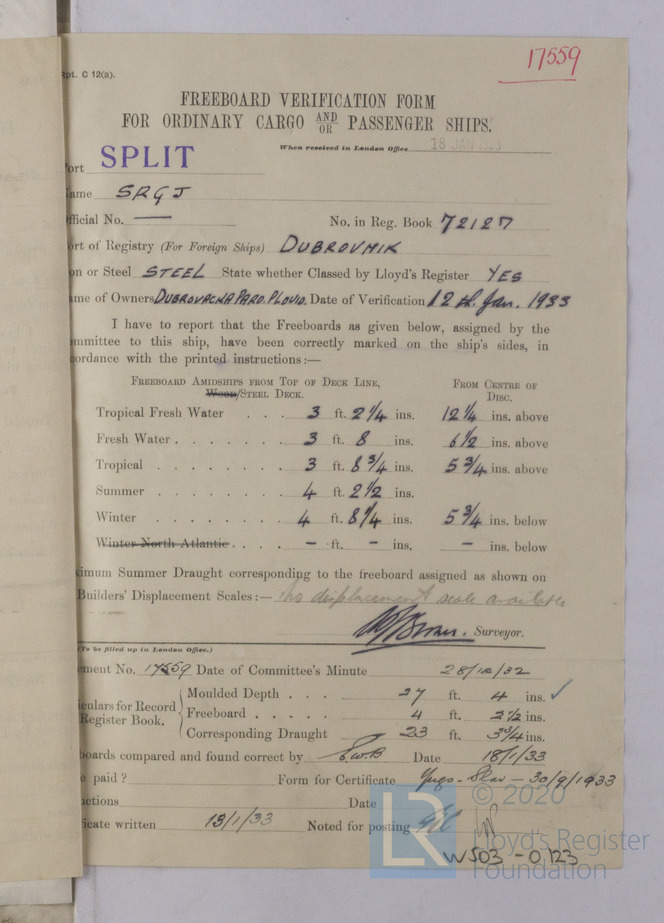 17559
Rpt. C 12(a).
FREEBOARD VERIFICATION FORM
FOR ORDINARY CARGO AND/OR PASSENGER SHIPS.
When received in London Office 18 JAN
ort SPLIT
ame SRGJ
fficial No. — No. in Reg. Book 72127
ort of Registry (For Foreign Ships) DUBROVNIK
on or Steel STEEL State whether Classed by Lloyd's Register YES
me of Owners DUBROVACKA PARO. PLOVID. Date of Verification 12th Jan. 1933
I have to report that the Freeboards as given below, assigned by the
mmittee to this ship, have been correctly marked on the ship's sides, in
ordance with the printed instructions:—
FREEBOARD AMIDSHIPS FROM TOP OF DECK LINE, FROM CENTRE OF
Wood/STEEL DECK. DISC.
Tropical Fresh Water . . . 3 ft. 2 1/4 ins. 12 1/4 ins. above
Fresh Water . . . . . . . 3 ft. 8 ins. 6 1/2 ins. above
Tropical . . . . . . . . 3 ft. 8 3/4 ins. 5 3/4 ins. above
Summer . . . . . . . . 4 ft. 2 1/2 ins.
Winter . . . . . . . . 4 ft. 8 1/4 ins. 5 3/4 ins. below
Winter North Atlantic . . . . – ft. – ins. – ins. below
ximum Summer Draught corresponding to the freeboard assigned as shown on
Builders' Displacement Scales:— No displacement scale available
Surveyor.
(To be filled up in London Office.)
ement No. 17559 Date of Committee's Minute 28/12/32
iculars for Record Register Book.
Moulded Depth . . . 27 ft. 4 ins. ✓
Freeboard . . . . . 4 ft. 2 1/2 ins.
Corresponding Draught 23 ft. 3 3/4 ins.
boards compared and found correct by E.W.B Date 18/1/33
e paid ? Form for Certificate Yugo-Slav — 30/9/1933
uctions Date
icate written 13/1/33 Noted for posting
© 2020
LR
Lloyd's Register
Foundation
W503-0123